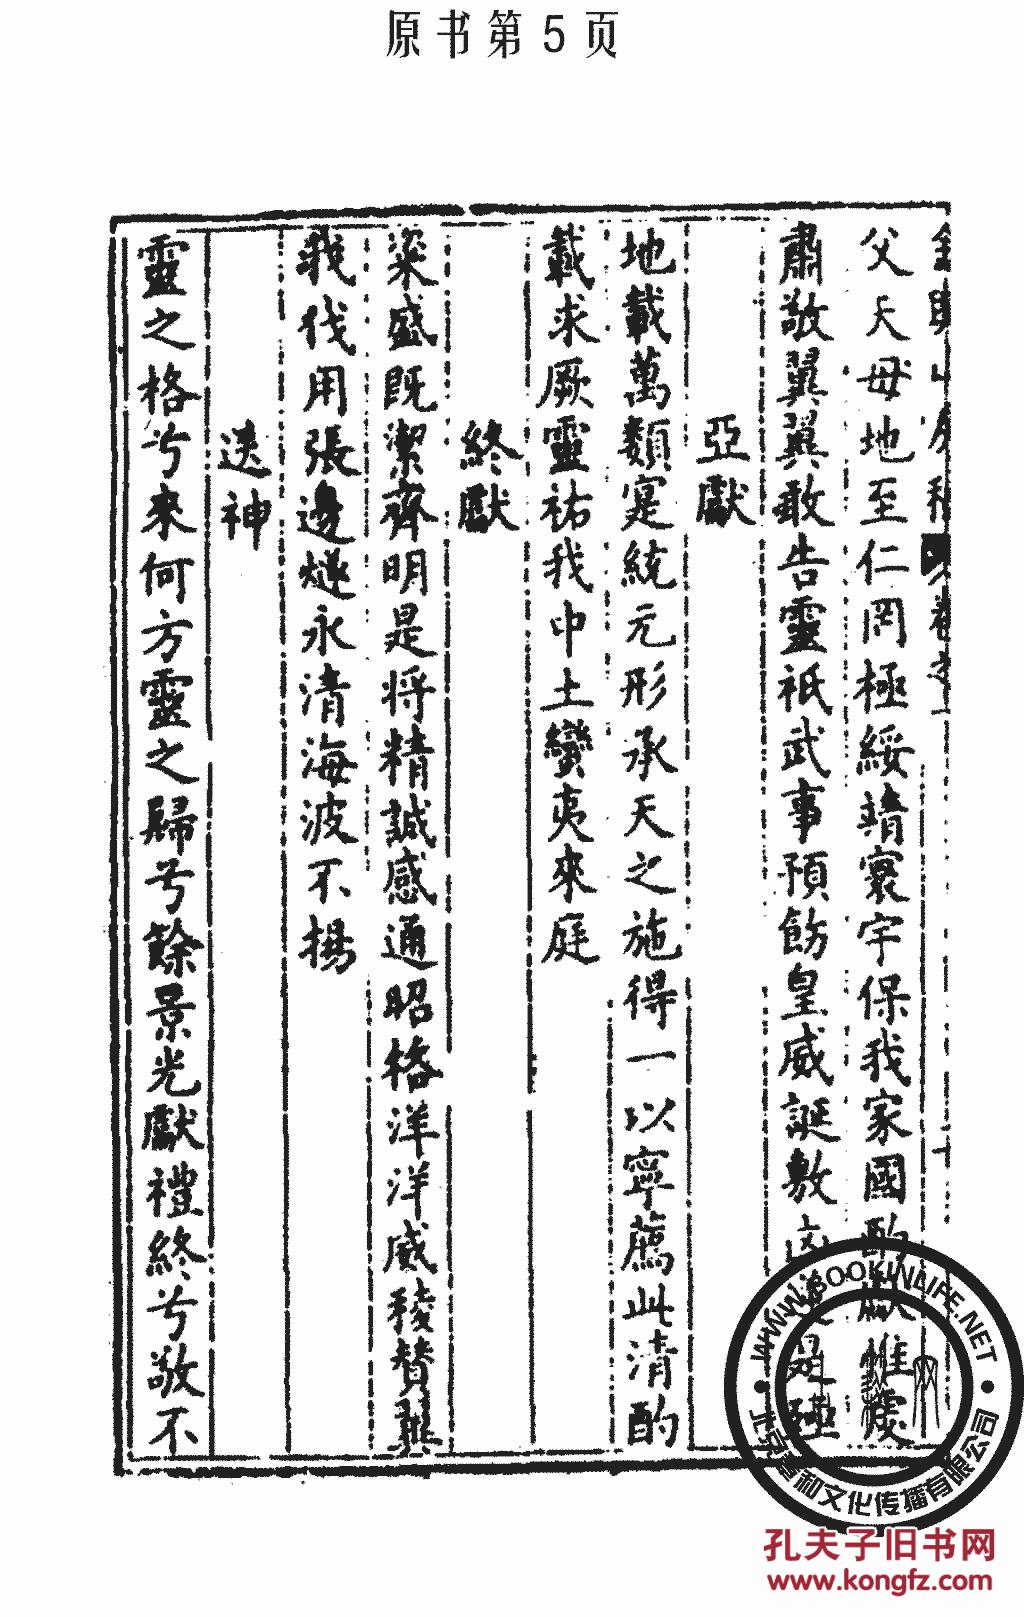 原书第5页
父天母地至仁罔極綏靖寰宇保我家國酌獻惟虔
肅敬翼翼敢告靈祇武事預飭皇威誕敷
亞獻
地載萬類寔統元形承天之施得一以寧薦此清酌
載求厥靈祐我中土蠻夷來庭
終獻
粢盛既潔齊明是将精誠感通昭格洋洋威稜贊
我伐用張邊燧永清海波不揚
送神
靈之格兮來何方靈之歸兮餘景光獻禮終兮敬不
WWW.BOOKINLIFE.NET
北京 和文化传播有限公司
孔夫子旧书网
www.kongfz.com